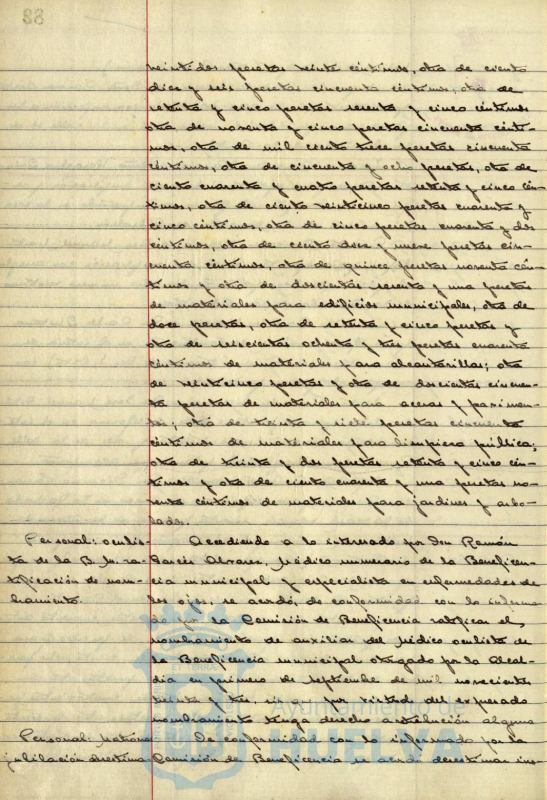 38
veintidos pesetas veinte céntimos, otra de ciento
diez y seis pesetas cincuenta céntimos, otra de
setenta y cinco pesetas sesenta y cinco céntimos
otra de noventa y cinco pesetas cincuenta cénti-
mos, otra de mil ciento trece pesetas cincuenta
céntimos, otra de cincuenta y ocho pesetas, otra de
ciento cuarenta y cuatro pesetas setenta y cinco cén-
timos, otra de ciento veinticinco pesetas cuarenta y
cinco céntimos, otra de cinco pesetas cuarenta y dos
céntimos, otra de ciento doce y nueve pesetas cin-
cuenta céntimos, otra de quince pesetas noventa cén-
timos y otra de doscientas sesenta y una pesetas
de materiales para edificios municipales, otra de
doce pesetas, otra de setenta y cinco pesetas y
otra de seiscientas ochenta y tres pesetas cuarenta
céntimos de materiales para alcantarillas; otra
de veinticinco pesetas y otra de doscientas cincuen-
ta pesetas de materiales para aceras y pavimen-
tos; otra de treinta y siete pesetas cincuenta
céntimos de materiales para limpieza pública;
otra de treinta y dos pesetas setenta y cinco cén-
timos y otra de ciento cuarenta y una pesetas no-
venta céntimos de materiales para jardines y arbo-
lados.
Personal: oculis-
ta de la B. M. ra-
tificación de nom-
bramiento.
Accediendo a lo interesado por Don Ramón
Garcés Alvarez, Médico numerario de la Beneficen-
cia municipal y especialista en enfermedades de
los ojos, se acordó, de conformidad con lo informa-
do por la Comisión de Beneficencia ratificar el
nombramiento de auxiliar del Médico oculista de
la Beneficencia municipal otorgado por la Alcal-
dia en primero de septiembre de mil novecientos
treinta y tres, sin que por virtud del expresado
nombramiento tenga derecho a retribución alguna
Personal: Matrona
jubilación desestima-
De conformidad con lo informado por la
Comisión de Beneficencia se acordó desestimar ins-
Ayuntamiento de
HUELVA